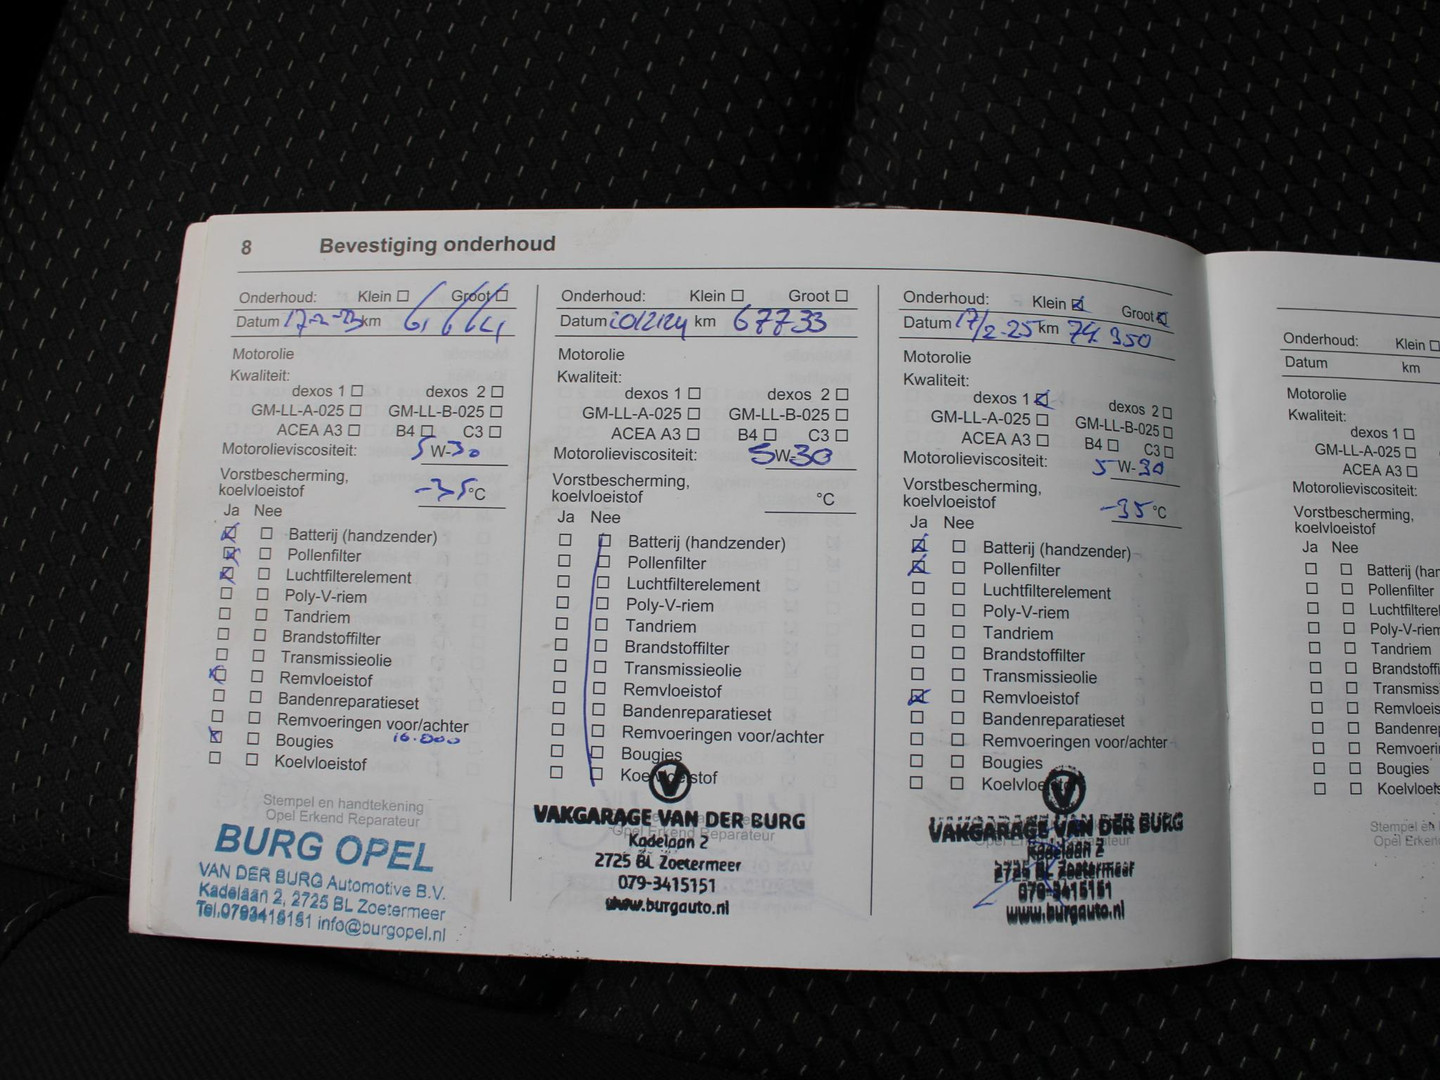 8 Bevestiging onderhoud
Onderhoud: Klein ☐ Groot ☐
Datum 17-2-23 km
Motorolie
Kwaliteit:
dexos 1 ☐ dexos 2 ☐
GM-LL-A-025 ☐ GM-LL-B-025 ☐
ACEA A3 ☐ B4 ☐ C3 ☐
Motorolieviscositeit: 5 W-30
Vorstbescherming,
koelvloeistof -35 °C
Ja Nee
☒ ☐ Batterij (handzender)
☒ ☐ Pollenfilter
☒ ☐ Luchtfilterelement
☐ ☐ Poly-V-riem
☐ ☐ Tandriem
☐ ☐ Brandstoffilter
☐ ☐ Transmissieolie
☒ ☐ Remvloeistof
☐ ☐ Bandenreparatieset
☐ ☐ Remvoeringen voor/achter
☒ ☐ Bougies 16.800
☐ ☐ Koelvloeistof
Stempel en handtekening
Opel Erkend Reparateur
BURG OPEL
VAN DER BURG Automotive B.V.
Kadelaan 2, 2725 BL Zoetermeer
Tel.0793415151 info@burgopel.nl
Onderhoud: Klein ☐ Groot ☐
Datum 20/2/24 km 67733
Motorolie
Kwaliteit:
dexos 1 ☐ dexos 2 ☐
GM-LL-A-025 ☐ GM-LL-B-025 ☐
ACEA A3 ☐ B4 ☐ C3 ☐
Motorolieviscositeit: 5W-30
Vorstbescherming,
koelvloeistof °C
Ja Nee
☐ ☐ Batterij (handzender)
☐ ☐ Pollenfilter
☐ ☐ Luchtfilterelement
☐ ☐ Poly-V-riem
☐ ☐ Tandriem
☐ ☐ Brandstoffilter
☐ ☐ Transmissieolie
☐ ☐ Remvloeistof
☐ ☐ Bandenreparatieset
☐ ☐ Remvoeringen voor/achter
☐ ☐ Bougies
☐ ☐ Koelvloeistof
V
VAKGARAGE VAN DER BURG
Opel Erkend Reparateur
Kadelaan 2
2725 BL Zoetermeer
079-3415151
www.burgauto.nl
Onderhoud: Klein ☒ Groot ☒
Datum 17/2-25 km 74.950
Motorolie
Kwaliteit:
dexos 1 ☒ dexos 2 ☐
GM-LL-A-025 ☐ GM-LL-B-025 ☐
ACEA A3 ☐ B4 ☐ C3 ☐
Motorolieviscositeit: 5 W-30
Vorstbescherming,
koelvloeistof -35 °C
Ja Nee
☒ ☐ Batterij (handzender)
☒ ☐ Pollenfilter
☐ ☐ Luchtfilterelement
☐ ☐ Poly-V-riem
☐ ☐ Tandriem
☐ ☐ Brandstoffilter
☐ ☐ Transmissieolie
☒ ☐ Remvloeistof
☐ ☐ Bandenreparatieset
☐ ☐ Remvoeringen voor/achter
☐ ☐ Bougies
☐ ☐ Koelvloeistof
V
VAKGARAGE VAN DER BURG
Opel Erkend Reparateur
Kadelaan 2
2725 BL Zoetermeer
079-3415151
www.burgauto.nl
Onderhoud: Klein ☐
Datum km
Motorolie
Kwaliteit:
dexos 1 ☐
GM-LL-A-025 ☐
ACEA A3 ☐
Motorolieviscositeit:
Vorstbescherming,
koelvloeistof
Ja Nee
☐ ☐ Batterij (han
☐ ☐ Pollenfilter
☐ ☐ Luchtfiltere
☐ ☐ Poly-V-riem
☐ ☐ Tandriem
☐ ☐ Brandstoffi
☐ ☐ Transmiss
☐ ☐ Remvloeis
☐ ☐ Bandenrep
☐ ☐ Remvoeri
☐ ☐ Bougies
☐ ☐ Koelvloeis
Stempel en h
Opel Erken